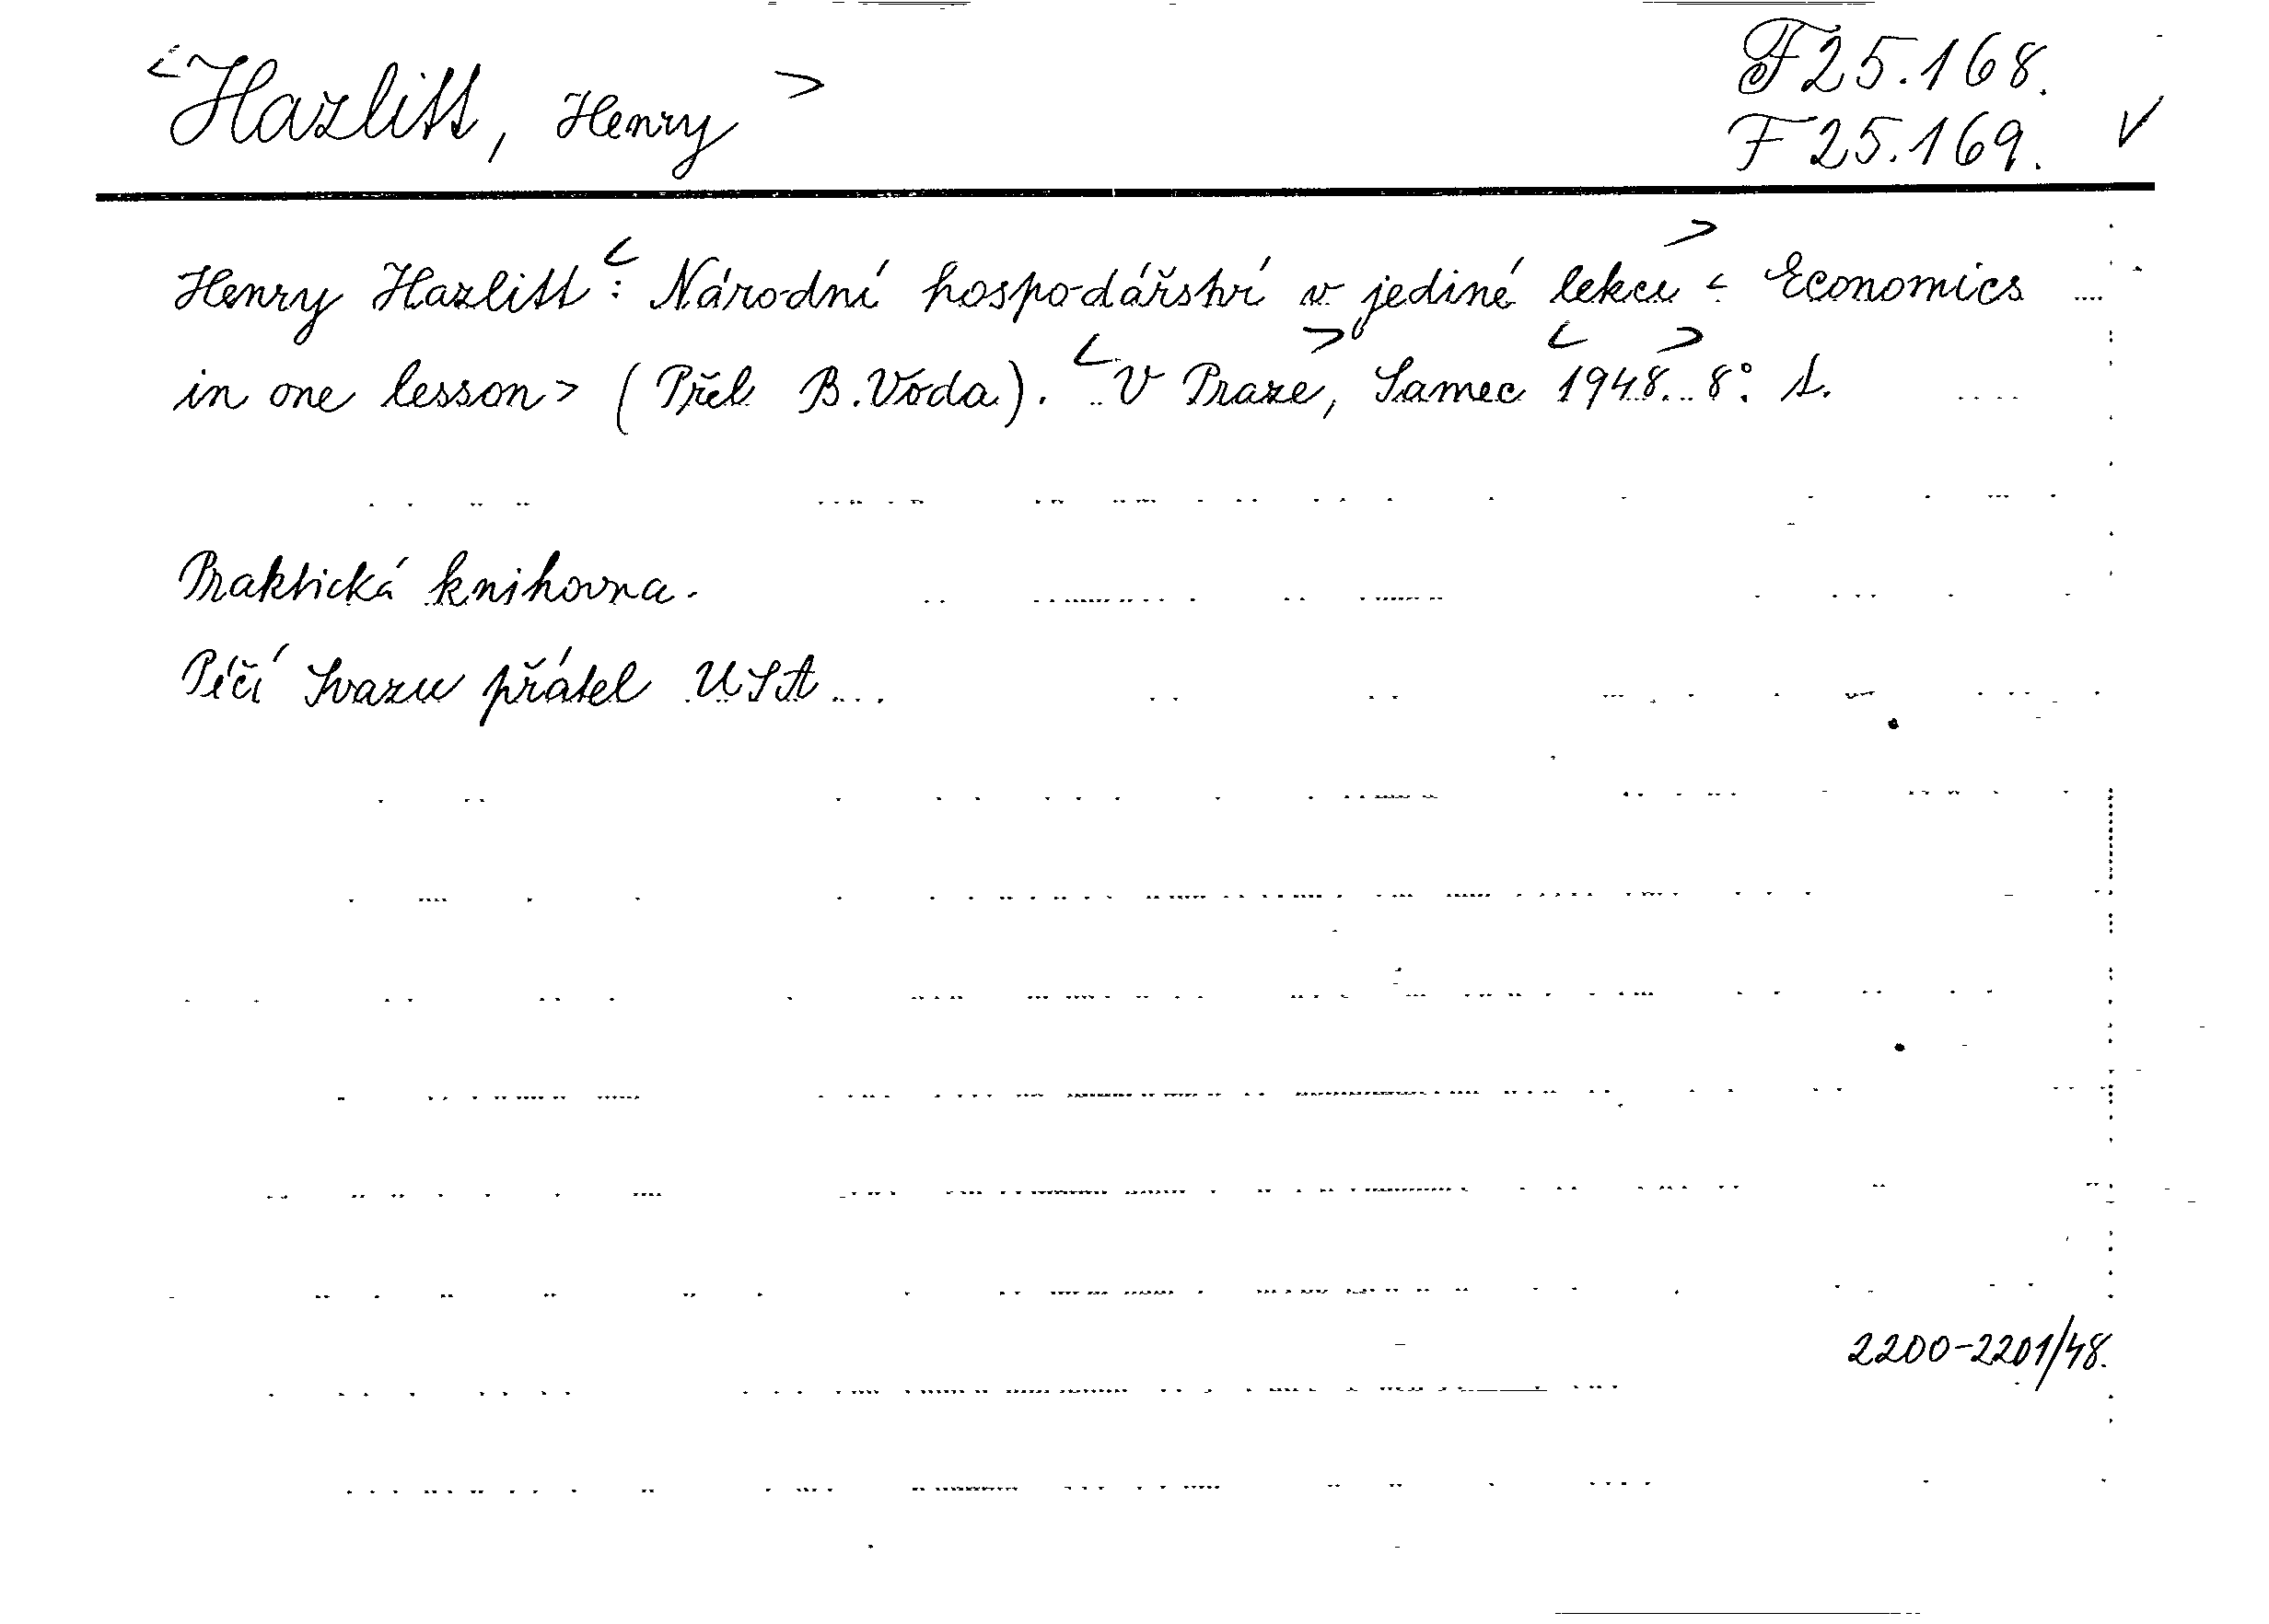 <Hazlitt, Henry>
F 25.168.
F 25.169. ✓
Henry Hazlitt: <Národní hospodářství v jediné lekci> < Economics
in one lesson > (Přel B. Voda). <V Praze>, Samec <1948>. 8°. s.
Praktická knihovna.
Péčí Svazu přátel USA...
2200-2201/48.